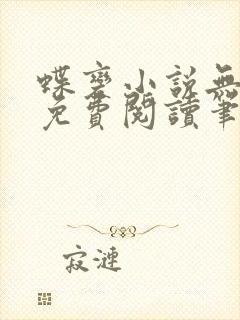 蝶變小說無
免費閱讀筆
寂漣